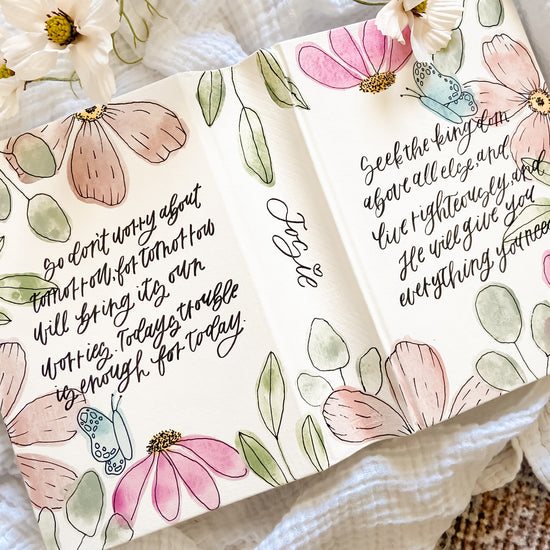 So don't worry about
tomorrow, for tomorrow
will bring its own
worries. Today's trouble
is enough for today.
Josie
Seek the kingdom
above all else, and
live righteously, and
He will give you
everything you need.